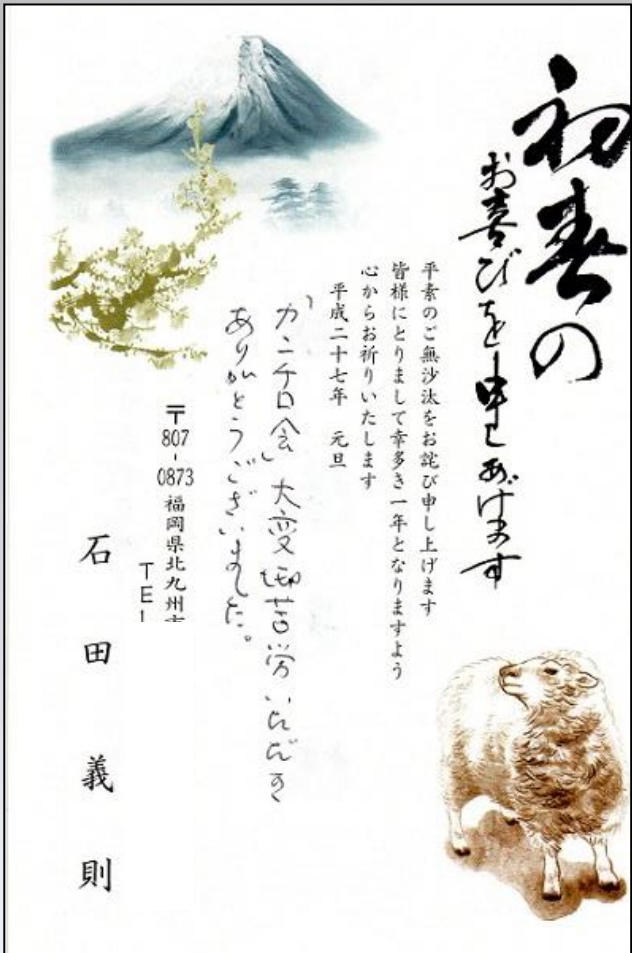 初春の
お喜びを申しあげます
平素のご無沙汰をお詫び申し上げます
皆様にとりまして幸多き一年となりますよう
心からお祈りいたします
平成二十七年 元旦
大変御苦労いただき
ありがとうございました。
〒807-0873 福岡県北九州市
TEL
石田義則